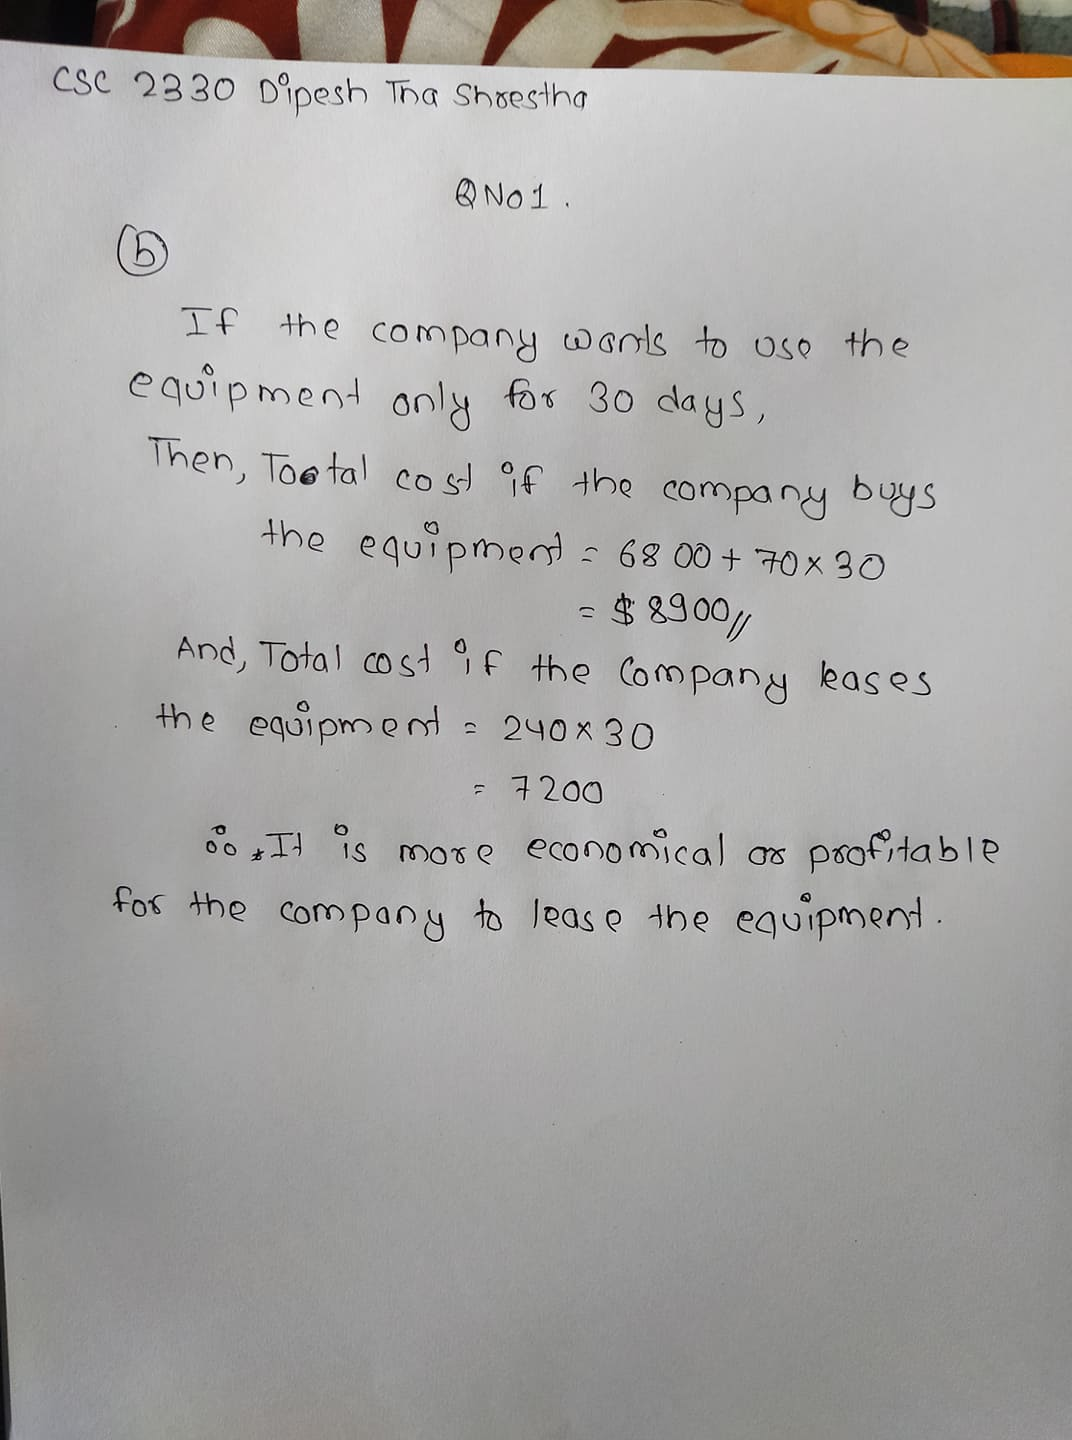 CSC 2330 Dipesh Tna Shrestha
Q No 1.
(b)
If the company wants to use the
equipment only for 30 days,
Then, Total cost if the company buys
the equipment = 6800 + 70 × 30
= $ 8900//
And, Total cost if the Company leases
the equipment = 240 × 30
= 7200
∴ It is more economical or profitable
for the company to lease the equipment.